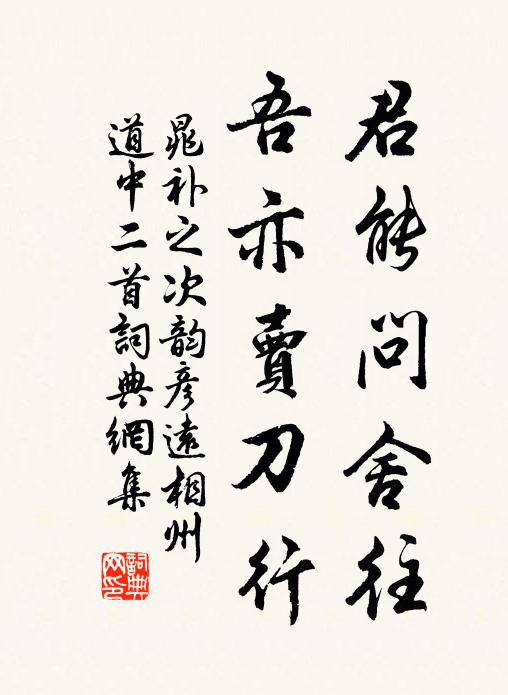 君能問舍往
吾亦賣刀行
晁补之次韵彦遠相州
道中二首詞典網集
詞典網印